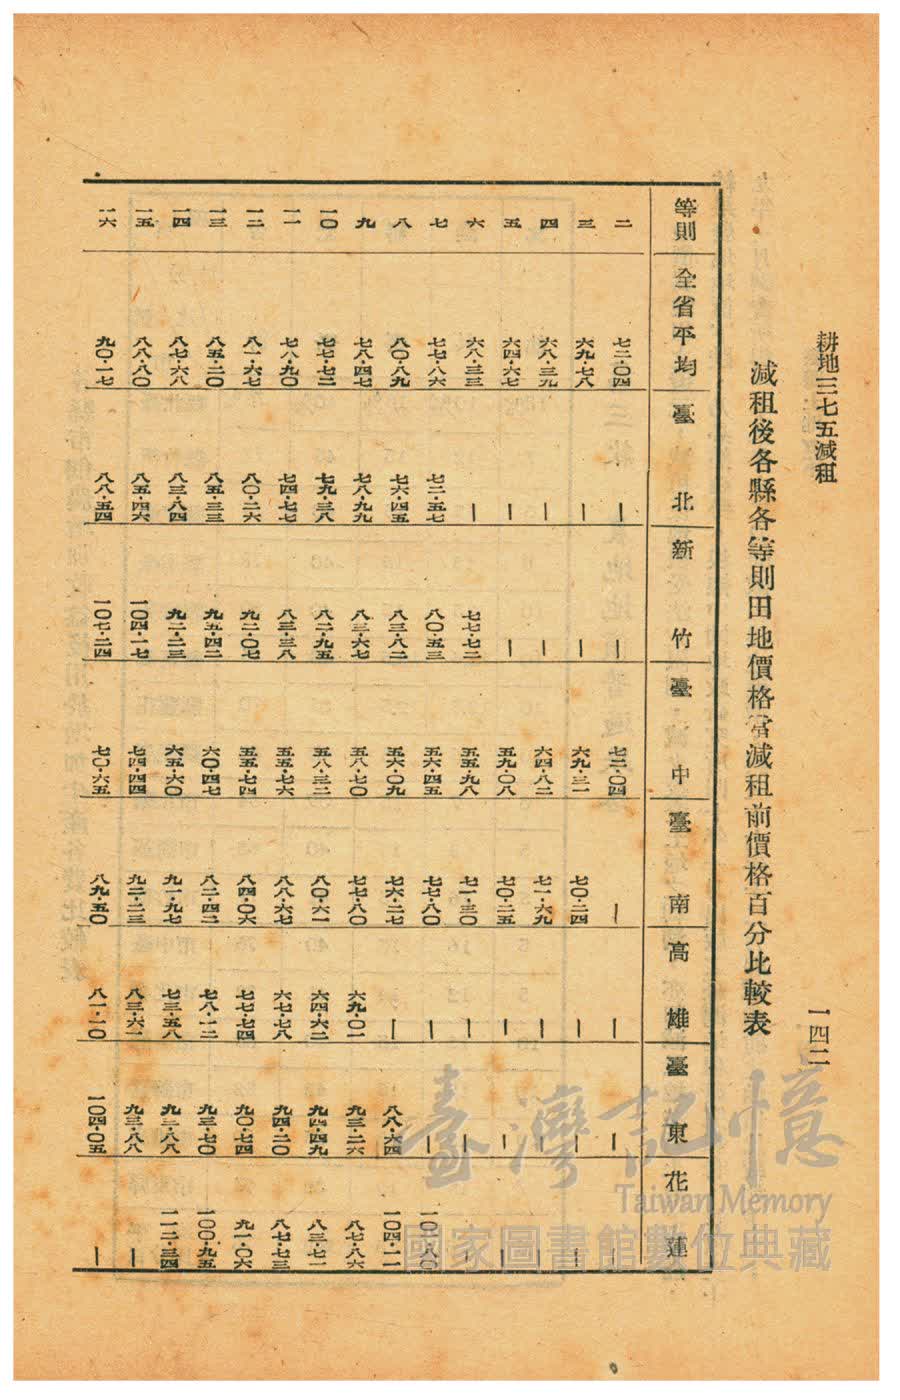 耕地三七五減租
一四二
減租後各縣各等則田地價格當減租前價格百分比較表
等則 全省平均 臺北 新竹 臺中 臺南 高雄 臺東 花蓮
二 七二·〇四 — — 七二·〇四 — — — —
三 六九·七八 — — 六九·三一 七〇·二四 — — —
四 六八·三九 — — 六四·八二 七一·六九 — — —
五 六四·六七 — — 五九·〇八 七〇·二五 — — —
六 六八·三三 — 七七·七二 五五·九八 七一·三〇 — — —
七 七七·八六 七二·五七 八〇·五三 五六·四五 七七·八〇 — — 一〇一·八〇
八 八〇·八九 七六·四五 八三·八二 五六·〇九 七六·二七 — 八八·六四 一〇四·一一
九 七八·四七 七八·九九 八三·六七 五八·七〇 七七·八〇 六九·〇一 九三·二六 八七·八六
一〇 七七·七二 七九·三八 八二·九五 五八·三二 八〇·六一 六四·六二 九四·四九 八三·七一
一一 七八·九〇 七四·七七 八三·三八 五五·七六 八八·六七 六七·七八 九四·二〇 八七·七三
一二 八一·六七 八〇·二六 九二·〇七 五五·七四 八四·〇六 七七·七四 九〇·七四 九一·〇六
一三 八五·二〇 八五·三三 九五·四二 六〇·四七 八二·四二 七八·一二 九三·七〇 一〇〇·九五
一四 八七·六八 八三·八四 九二·二三 六五·六〇 九一·九七 七三·五八 九二·八八 一一二·三四
一五 八八·八〇 八五·四六 一〇四·一七 七四·四四 九二·二三 八三·六一 九三·八八 —
一六 九〇·一七 八八·五四 一〇七·二四 七〇·六五 八九·五〇 八一·一〇 一〇四·〇五 —
臺灣記憶
Taiwan Memory
國家圖書館數位典藏